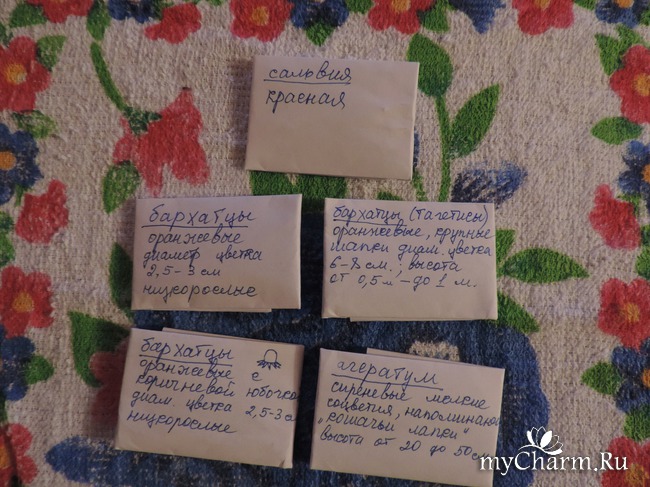 сальвия
красная
бархатцы
оранжевые
диаметр цветка
2,5-3 см
низкорослые
бархатцы (тагетисы)
оранжевые, крупные
шапки диам. цветка
6-8 см.; высота
от 0,5 м - до 1 м.
бархатцы
оранжевые с
коричневой юбочкой
диам. цветка 2,5-3 см
низкорослые
агератум
сиреневые мелкие
соцветия, напоминающие
"кошачьи лапки"
высота от 20 до 50 см
myCharm.Ru